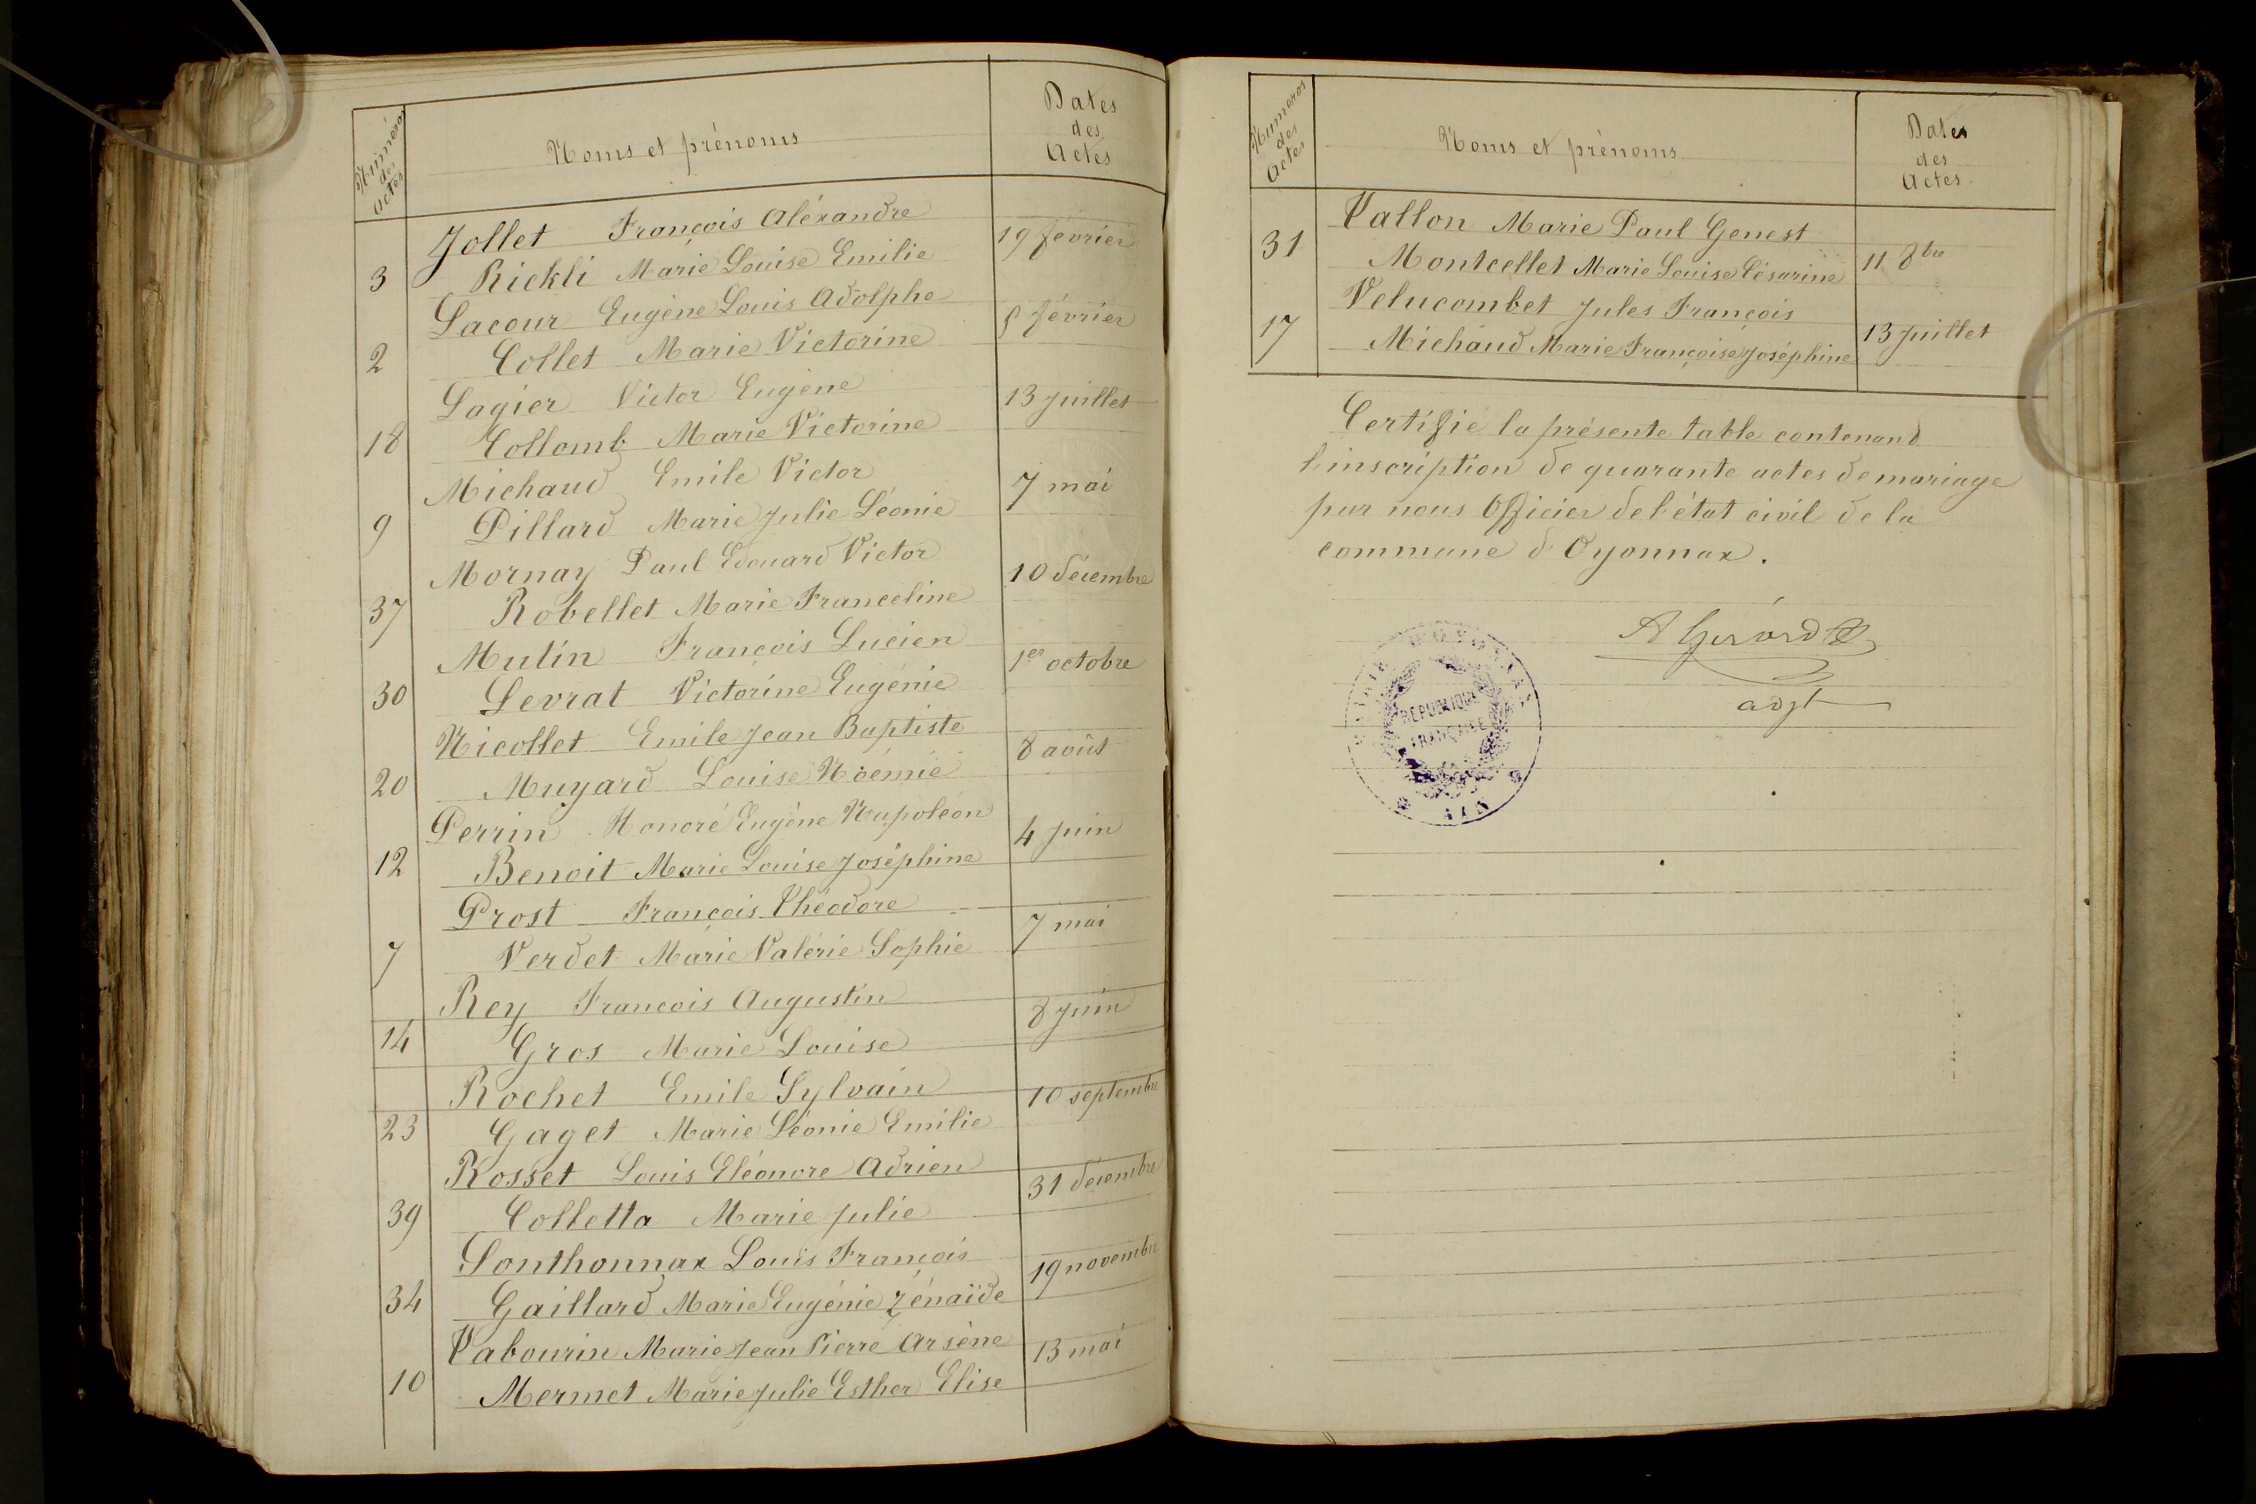 Numéros
des
Actes
Noms et prénoms
Dates
des
Actes
Jollet François Aléxandre
3
Rickli Marie Louise Emilie
19 février
Lacour Eugène Louis Adolphe
2
Collet Marie Victorine
5 février
Lagier Victor Eugène
18
Collomb Marie Victorine
13 juillet
Michaud Emile Victor
9
Pillard Marie Julie Léonie
7 mai
Mornay Paul Edouard Victor
37
Robellet Marie Franceline
10 décembre
Mutin François Lucien
30
Levrat Victorine Eugénie
1er octobre
Nicollet Emile Jean Baptiste
20
Muyard Louise Noémie
8 août
Perrin Honoré Eugène Napoléon
12
Benoit Marie Louise Joséphine
4 juin
Prost François Théodore
7
Verdet Marie Valérie Sophie
7 mai
Rey François Augustin
14
Gros Marie Louise
8 juin
Rochet Emile Sylvain
23
Gaget Marie Léonie Emilie
10 septembre
Rosset Louis Eléonore Adrien
39
Colletta Marie Julie
31 décembre
Sonthonnax Louis François
34
Gaillard Marie Eugénie Zénaïde
19 novembre
Vabourin Marie Jean Pierre Arsène
10
Mermet Marie Julie Esther Elise
13 mai
Numéros
des
Actes
Noms et prénoms
Dates
des
Actes
Vallon Marie Paul Genest
31
Montcellet Marie Louise Césarine
11 8bre
Velucombet Jules François
17
Michaud Marie Françoise Joséphine
13 juillet
Certifié la présente table contenand
l'inscription de quarante actes de mariage
par nous Officier de l'état civil de la
commune d'Oyonnax.
A Gérard
adjt
MAIRIE D'OYONNAX
RÉPUBLIQUE
FRANÇAISE
AIN